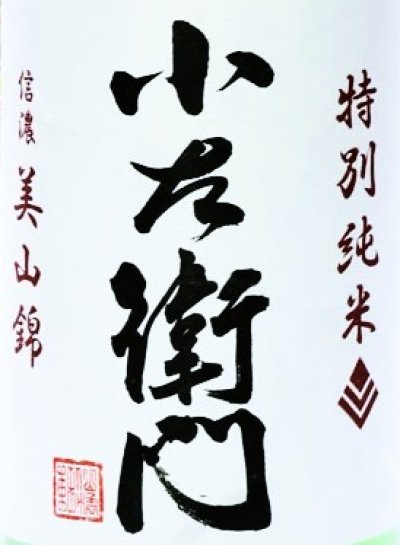 特別純米
小左衛門
信濃 美山錦